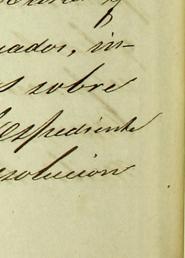 uados, in-
s sobre
Espediente
esolucion